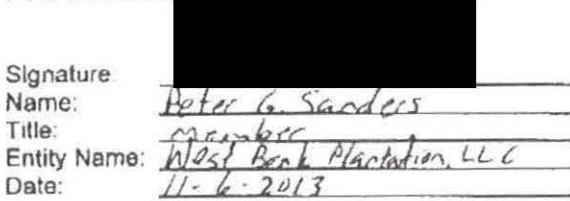 Signature
Name: Peter G. Sanders
Title: Member
Entity Name: West Bank Plantation, LLC
Date: 11-6-2013